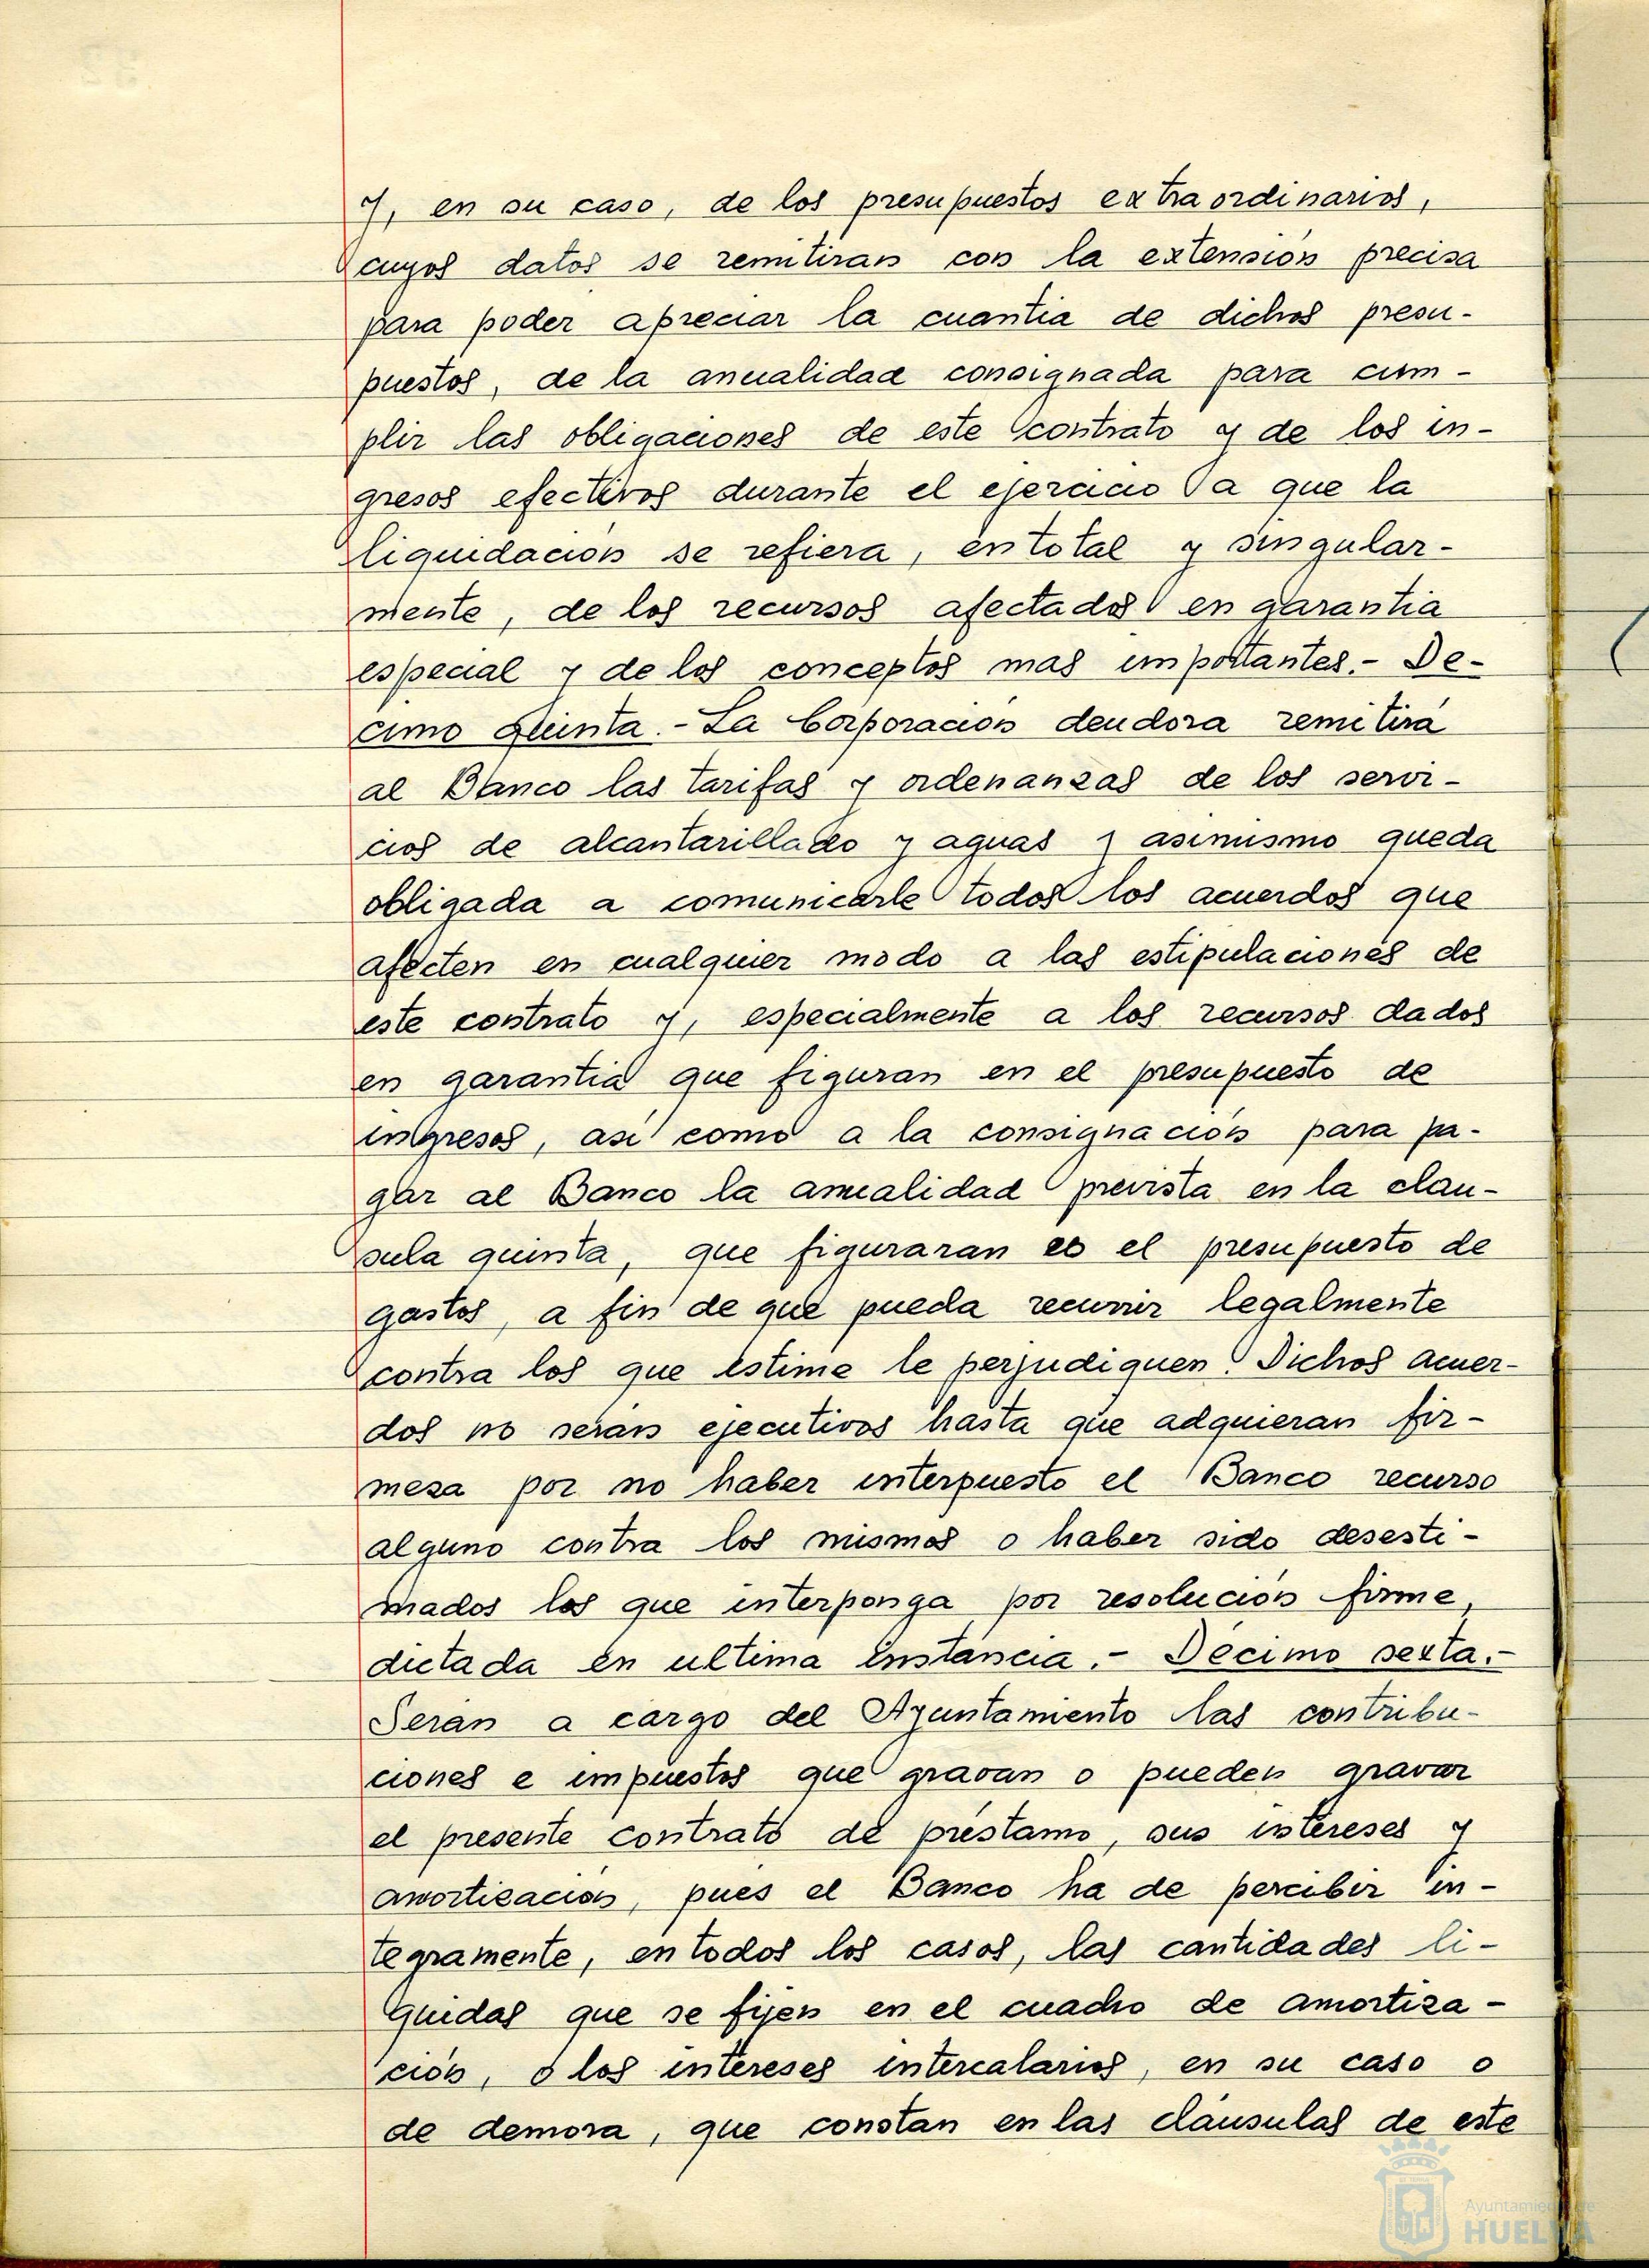 y, en su caso, de los presupuestos extraordinarios,
cuyos datos se remitiran con la extensión precisa
para poder apreciar la cuantia de dichos presu-
puestos, de la anualidad consignada para cum-
plir las obligaciones de este contrato y de los in-
gresos efectivos durante el ejercicio a que la
liquidación se refiera, en total y singular-
mente, de los recursos afectados en garantia
especial y de los conceptos mas importantes.- De-
cimo quinta.- La Corporación deudora remitirá
al Banco las tarifas y ordenanzas de los servi-
cios de alcantarillado y aguas y asimismo queda
obligada a comunicarle todos los acuerdos que
afecten en cualquier modo a las estipulaciones de
este contrato y, especialmente a los recursos dados
en garantia que figuran en el presupuesto de
ingresos, asi como a la consignación para pa-
gar al Banco la anualidad prevista en la clau-
sula quinta, que figuraran en el presupuesto de
gastos, a fin de que pueda recurrir legalmente
contra los que estime le perjudiquen. Dichos acuer-
dos no serán ejecutivos hasta que adquieran fir-
meza por no haber interpuesto el Banco recurso
alguno contra los mismos o haber sido desesti-
mados los que interponga por resolución firme,
dictada en ultima instancia.- Décimo sexta.-
Serán a cargo del Ayuntamiento las contribu-
ciones e impuestos que gravan o pueden gravar
el presente contrato de préstamo, sus intereses y
amortización, pues el Banco ha de percibir in-
tegramente, en todos los casos, las cantidades li-
quidas que se fijen en el cuadro de amortiza-
ción, o los intereses intercalarios, en su caso o
de demora, que constan en las cláusulas de este
Ayuntamiento de
HUELVA